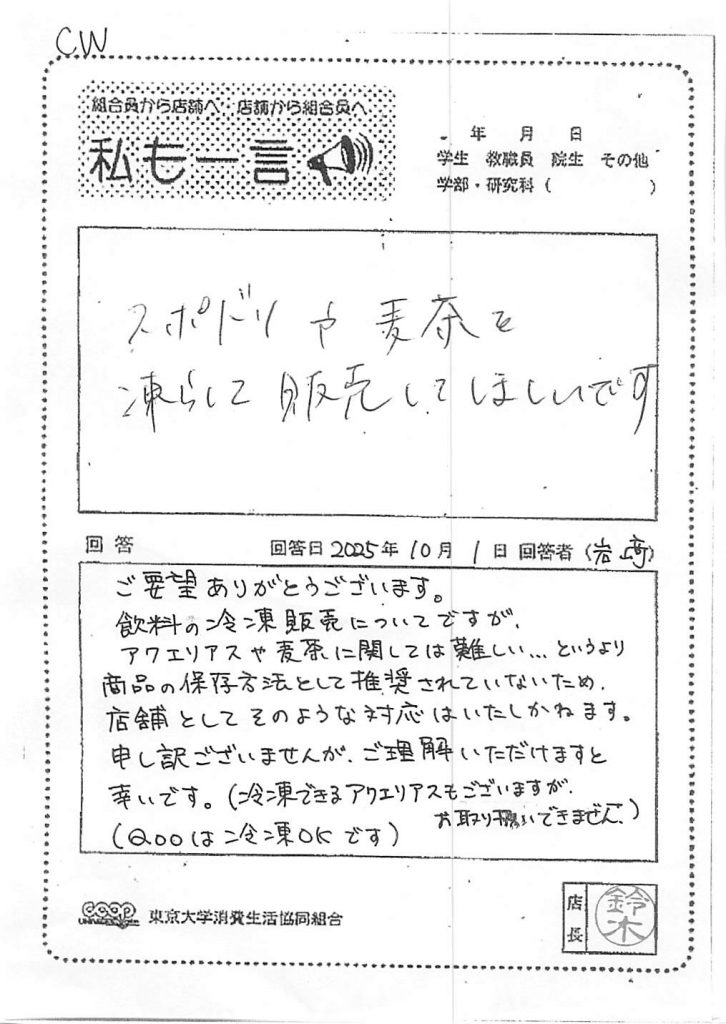 CW
組合員から店舗へ 店舗から組合員へ
私も一言
年 月 日
学生 教職員 院生 その他
学部・研究科( )
スポドリや麦茶を
凍らして販売してほしいです
回答 回答日 2025年 10月 1日 回答者(岩崎)
ご要望ありがとうございます。
飲料の冷凍販売についてですが、
アクエリアスや麦茶に関しては難しい…というより
商品の保存方法として推奨されていないため、
店舗としてそのような対応はいたしかねます。
申し訳ございませんが、ご理解いただけますと
幸いです。(冷凍できるアクエリアスもございますが、
お取り扱いできません。)
(Qooは冷凍OKです)
coop 東京大学消費生活協同組合
店長 鈴木